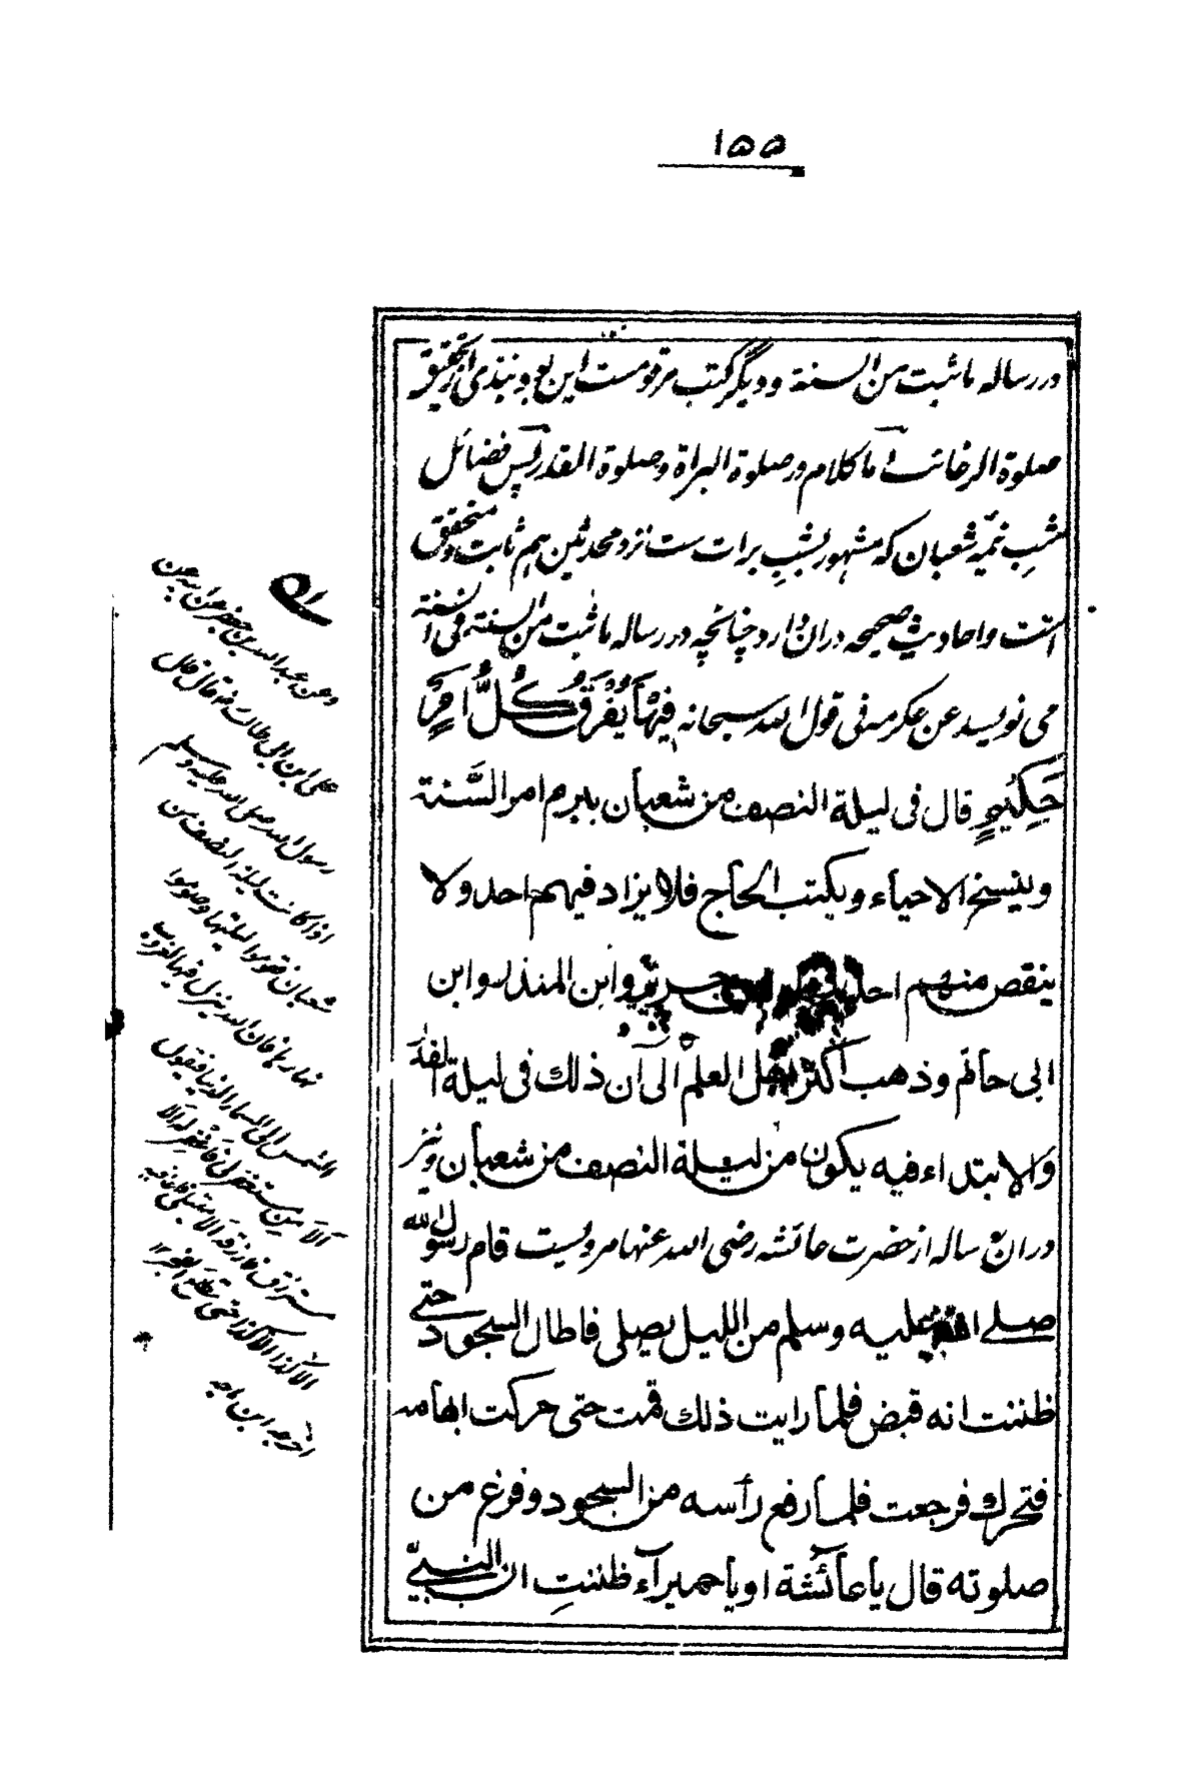 ۱۵۵
در رساله ما ثبت من السنة و دیگر کتب مرقومست این بود نبذی از تحقیق
صلوة الرغائب اما کلام در صلوة البراة و صلوة القدر پس فضائل
شب نیمه شعبان که مشهور بشب برات ست نزد محدثین هم ثابت و متحقق
است و احادیث صحیحه دران وارد چنانچه در رساله ما ثبت من السنة فی السنة
می نویسد عن عکرمه فی قول الله سبحانه فِیْهَا یُفْرَقُ کُلُّ اَمْرٍ
حَکِیْمٍ قال فی لیلة النصف من شعبان یبرم امر السَّنة
وینسخ الاحیاء ویکتب الحاج فلا یزاد فیهم احد ولا
ینقص منهم احد جریر وابن المنذر وابن
ابی حاتم وذهب اکثر اهل العلم الی ان ذلک فی لیلة القدر
والابتداء فیه یکون من لیلة النصف من شعبان ونیز
دران رساله از حضرت عائشه رضی الله عنها مرویست قام رسول الله
صلی الله علیه وسلم من اللیل یصلی فاطال السجود حتی
ظننت انه قبض فلما رایت ذلک قمت حتی حرکت ابهامه
فتحرک فرجعت فلما رفع رأسه من السجود وفرغ من
صلوته قال یا عائشة او یا حمیراء ظننتِ ان النبیّ
وعن عبدالله بن جعفر عن ابیه عن
علی ابن ابی طالب رضه قال قال
رسول الله صلی الله علیه وسلم
اذا کانت لیلة النصف من
شعبان فقوموا لیلتها وصوموا
نهارها فان الله ینزل فیها لغروب
الشمس الی السماء الدنیا فیقول
الا من مستغفر لی فاغفر له الا
مسترزق فارزقه الا مبتلی فاعافیه
الا کذا الا کذا حتی یطلع الفجر ۱۲
اخرجه ابن ماجه